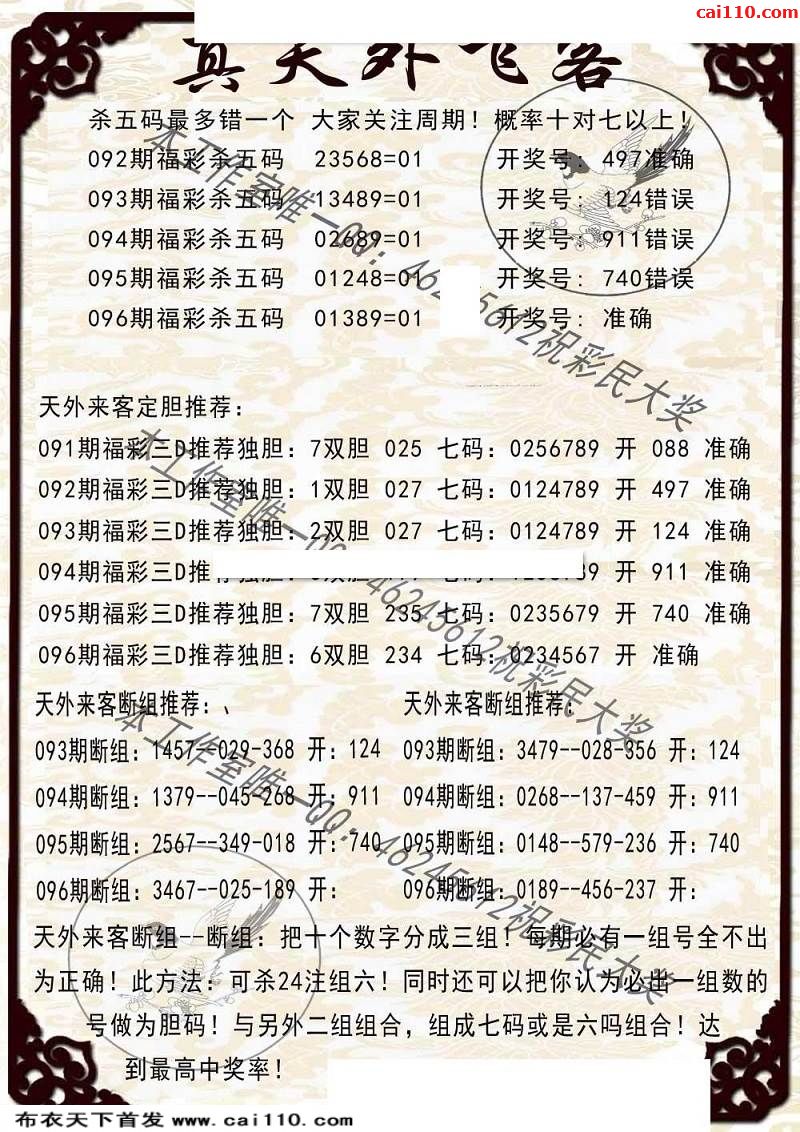 cai110.com
真天外飞客
杀五码最多错一个 大家关注周期！概率十对七以上！
092期福彩杀五码 23568=01 开奖号：497准确
093期福彩杀五码 13489=01 开奖号：124错误
094期福彩杀五码 02689=01 开奖号：911错误
095期福彩杀五码 01248=01 开奖号：740错误
096期福彩杀五码 01389=01 开奖号：准确
天外来客定胆推荐：
091期福彩三D推荐独胆：7双胆 025 七码：0256789 开 088 准确
092期福彩三D推荐独胆：1双胆 027 七码：0124789 开 497 准确
093期福彩三D推荐独胆：2双胆 027 七码：0124789 开 124 准确
094期福彩三D推荐独胆： 双胆 七码： 89 开 911 准确
095期福彩三D推荐独胆：7双胆 235 七码：0235679 开 740 准确
096期福彩三D推荐独胆：6双胆 234 七码：0234567 开 准确
天外来客断组推荐：、 天外来客断组推荐：
093期断组：1457--029-368 开：124 093期断组：3479--028-356 开：124
094期断组：1379--045-268 开：911 094期断组：0268--137-459 开：911
095期断组：2567--349-018 开：740 095期断组：0148--579-236 开：740
096期断组：3467--025-189 开： 096期断组：0189--456-237 开：
天外来客断组--断组：把十个数字分成三组！每期必有一组号全不出
为正确！此方法：可杀24注组六！同时还可以把你认为必出一组数的
号做为胆码！与另外二组组合，组成七码或是六吗组合！达
到最高中奖率！
本工作室唯一QQ：46245612祝彩民大奖
本工作室唯一QQ：46245612祝彩民大奖
本工作室唯一QQ：46245612祝彩民大奖
布衣天下首发 www.cai110.com